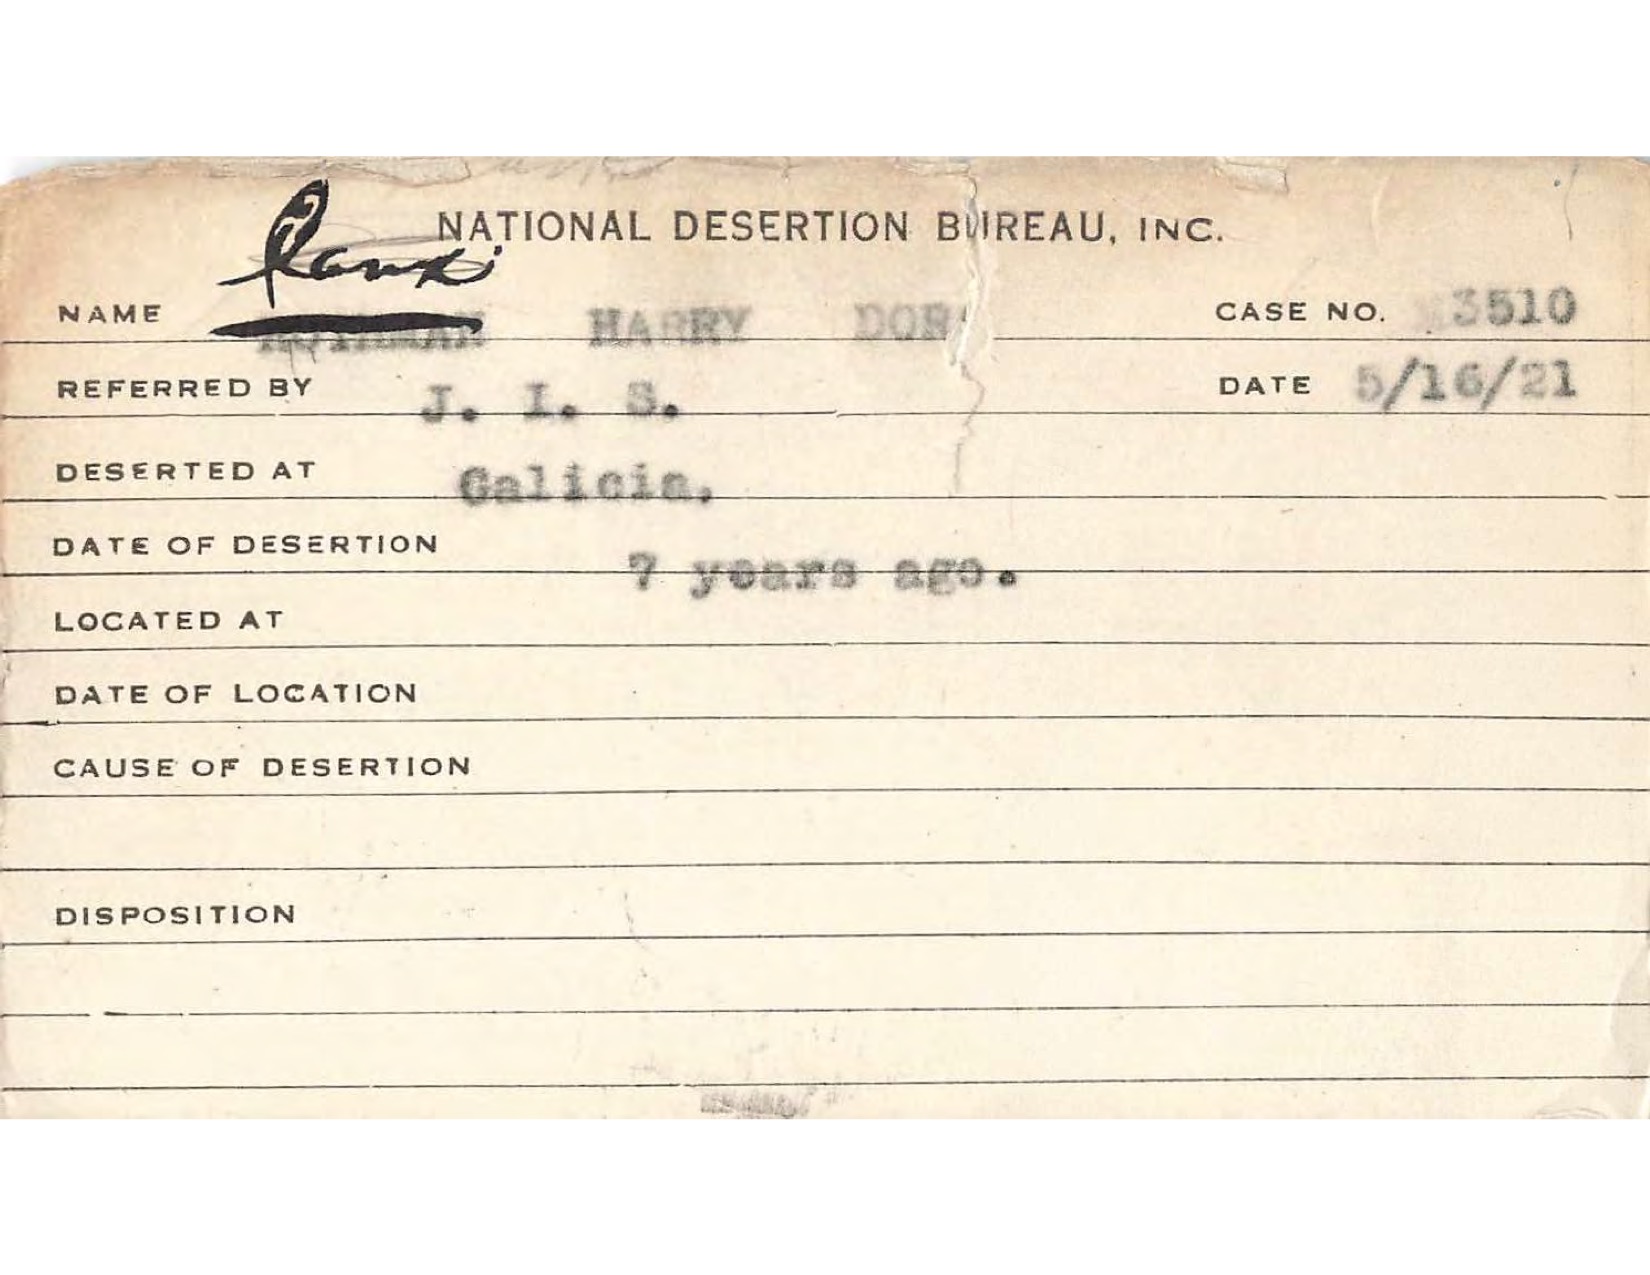 NATIONAL DESERTION BUREAU, INC.
NAME HARRY CASE NO. 3510
REFERRED BY J. I. S. DATE 5/16/21
DESERTED AT Galicia.
DATE OF DESERTION 7 years ago.
LOCATED AT
DATE OF LOCATION
CAUSE OF DESERTION
DISPOSITION